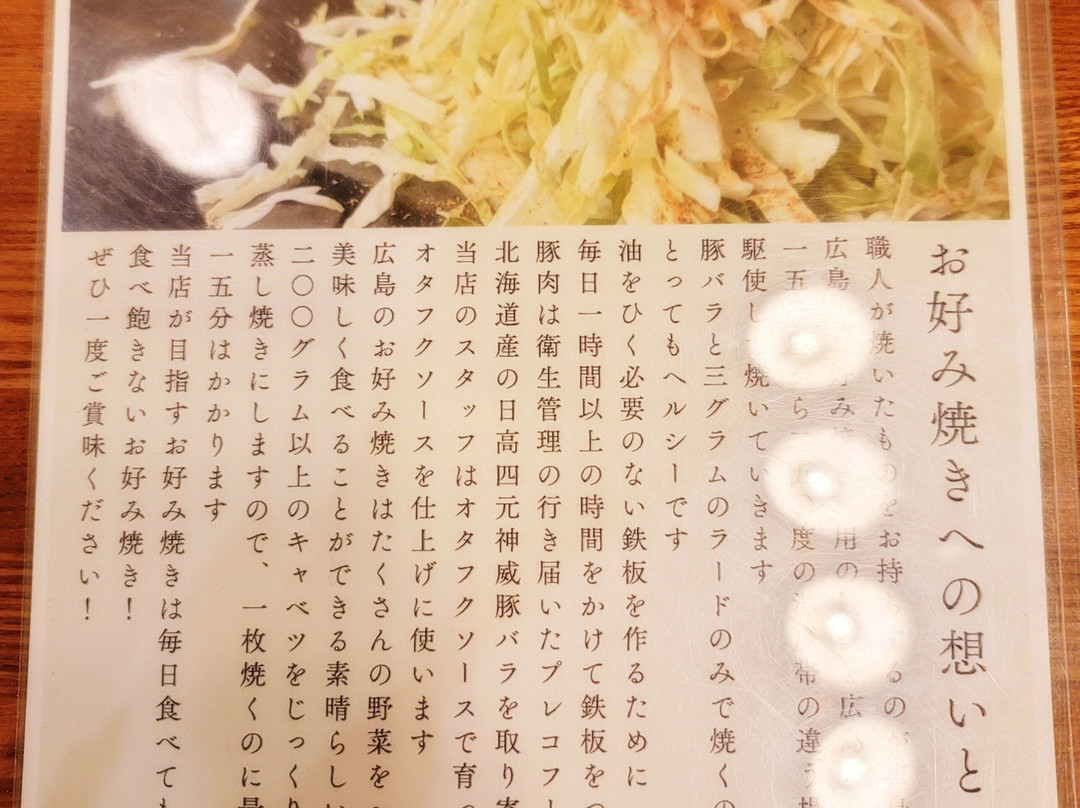 お好み焼きへの想いと
職人が焼いたものをお持 るの
広島 み 用の 広
一五 ら 度の 帯の違う
駆使し 焼いていきます
豚バラと三グラムのラードのみで焼くの
とってもヘルシーです
油をひく必要のない鉄板を作るために
毎日一時間以上の時間をかけて鉄板をつ
豚肉は衛生管理の行き届いたプレコフ
北海道産の日高四元神威豚バラを取り寄
当店のスタッフはオタフクソースで育っ
オタフクソースを仕上げに使います
広島のお好み焼きはたくさんの野菜を
美味しく食べることができる素晴らしい
二〇〇グラム以上のキャベツをじっくり
蒸し焼きにしますので、一枚焼くのに最
一五分はかかります
当店が目指すお好み焼きは毎日食べても
食べ飽きないお好み焼き！
ぜひ一度ご賞味ください！